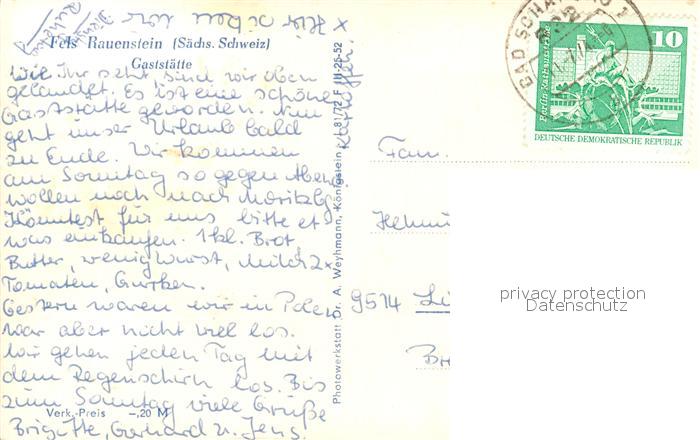 x Hier oben
Fels Rauenstein (Sächs. Schweiz)
Gaststätte
Wie Ihr seht, sind wir oben
gelandet. Es ist eine schöne
Gaststätte geworden. Nun
geht unser Urlaub bald
zu Ende. Wir kommen
am Sonntag so gegen Abend
wollen noch nach Moritzbg
Könntest für uns bitte et
was einkaufen. 1 kl. Brot
Butter, wenig Wurst, Milch 2x
Tomaten, Gurken.
Gestern waren wir in Polen
war aber nicht viel los.
Wir gehen jeden Tag mit
dem Regenschirm los. Bis
zum Sonntag viele Grüße
Brigitte, Gerhard u. Jens.
Verk.-Preis —,20 M
Photowerkstatt Dr. A. Weyhmann, Königstein J 81/72 F III-25-52
Kartoffeln
Fam.
Helmu
9514 Li
BAD SCHANDAU 1
10
Berlin Rathausstraße
DEUTSCHE DEMOKRATISCHE REPUBLIK
privacy protection
Datenschutz